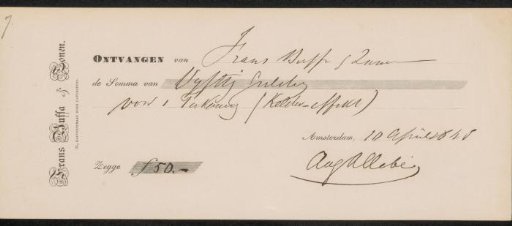 7.
Frans Buffa & Zonen.
ONTVANGEN van Frans Buffa & Zonen
de Somma van Vijftig gulden
voor 1 Teekening (Kelder effect)
Amsterdam, 10 April 1848
Zegge f 50.-
Aug Allebé